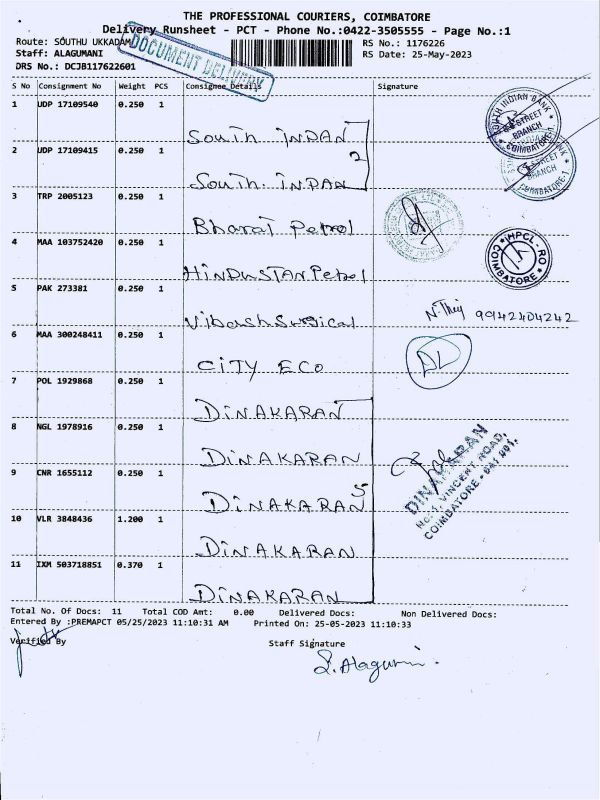 THE PROFESSIONAL COURIERS, COIMBATORE
Delivery Runsheet - PCT - Phone No.:0422-3505555 - Page No.:1
Route: SOUTHU UKKADAM
RS No.: 1176226
Staff: ALAGUMANI
RS Date: 25-May-2023
DRS No.: DCJB117622601
DOCUMENT DELIVERY
S No Consignment No Weight PCS Consignee Details Signature
1 UDP 17109540 0.250 1
South INDAN
SOUTH INDIAN BANK
STREET
BRANCH
COIMBATORE-1
2 UDP 17109415 0.250 1
2
South. INDAN
STREET
BRANCH
COIMBATORE-1
3 TRP 2005123 0.250 1
Bharat Petrol
4 MAA 103752420 0.250 1
HINDUSTAN Petrol
HPCL - RO
COIMBATORE
5 PAK 273381 0.250 1
Vibash Surgical
9942404242
6 MAA 300248411 0.250 1
CITY ECO
7 POL 1929868 0.250 1
DINAKARAN
8 NGL 1978916 0.250 1
DINAKARAN
9 CNR 1655112 0.250 1
DINAKARAN
5
DINAKARAN
No: 1, VINCENT ROAD,
COIMBATORE - 641 001.
10 VLR 3848436 1.200 1
DINAKARAN
11 IXM 503718851 0.370 1
DINAKARAN
Total No. Of Docs: 11 Total COD Amt: 0.00 Delivered Docs: Non Delivered Docs:
Entered By :PREMAPCT 05/25/2023 11:10:31 AM Printed On: 25-05-2023 11:10:33
Verified By
Staff Signature